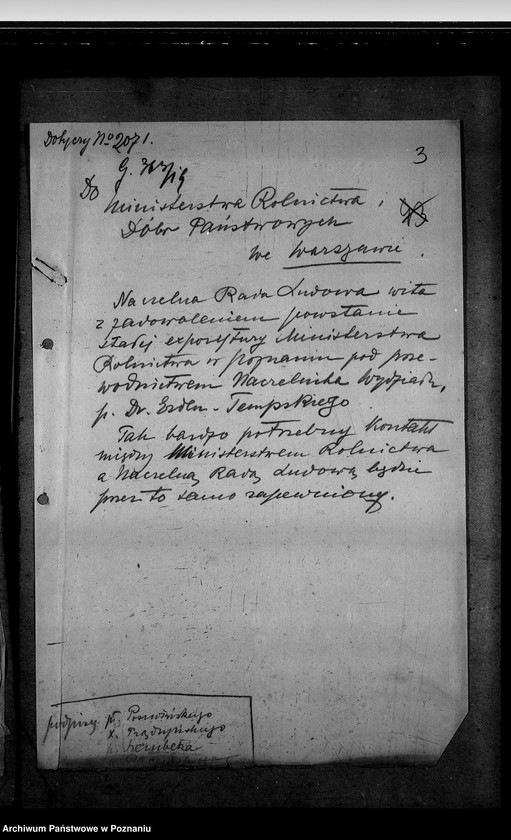 Dotyczy No 2071.
3
Do
Ministerstwa Rolnictwa i
Dóbr Państwowych
we Warszawie.
Naczelna Rada Ludowa wita
z zadowoleniem powstanie
stałej expozytury Ministerstwa
Rolnictwa w Poznaniu pod prze-
wodnictwem Naczelnika Wydziału,
p. Dr. - Tempskiego
Tak bardzo potrzebny kontakt
między Ministerstwem Rolnictwa
a Naczelną Radą Ludową będzie
przez to samo zapewniony.
podpisy: p. Poszwińskiego
X. Prądzyńskiego
p. Szembeka
Archiwum Państwowe w Poznaniu